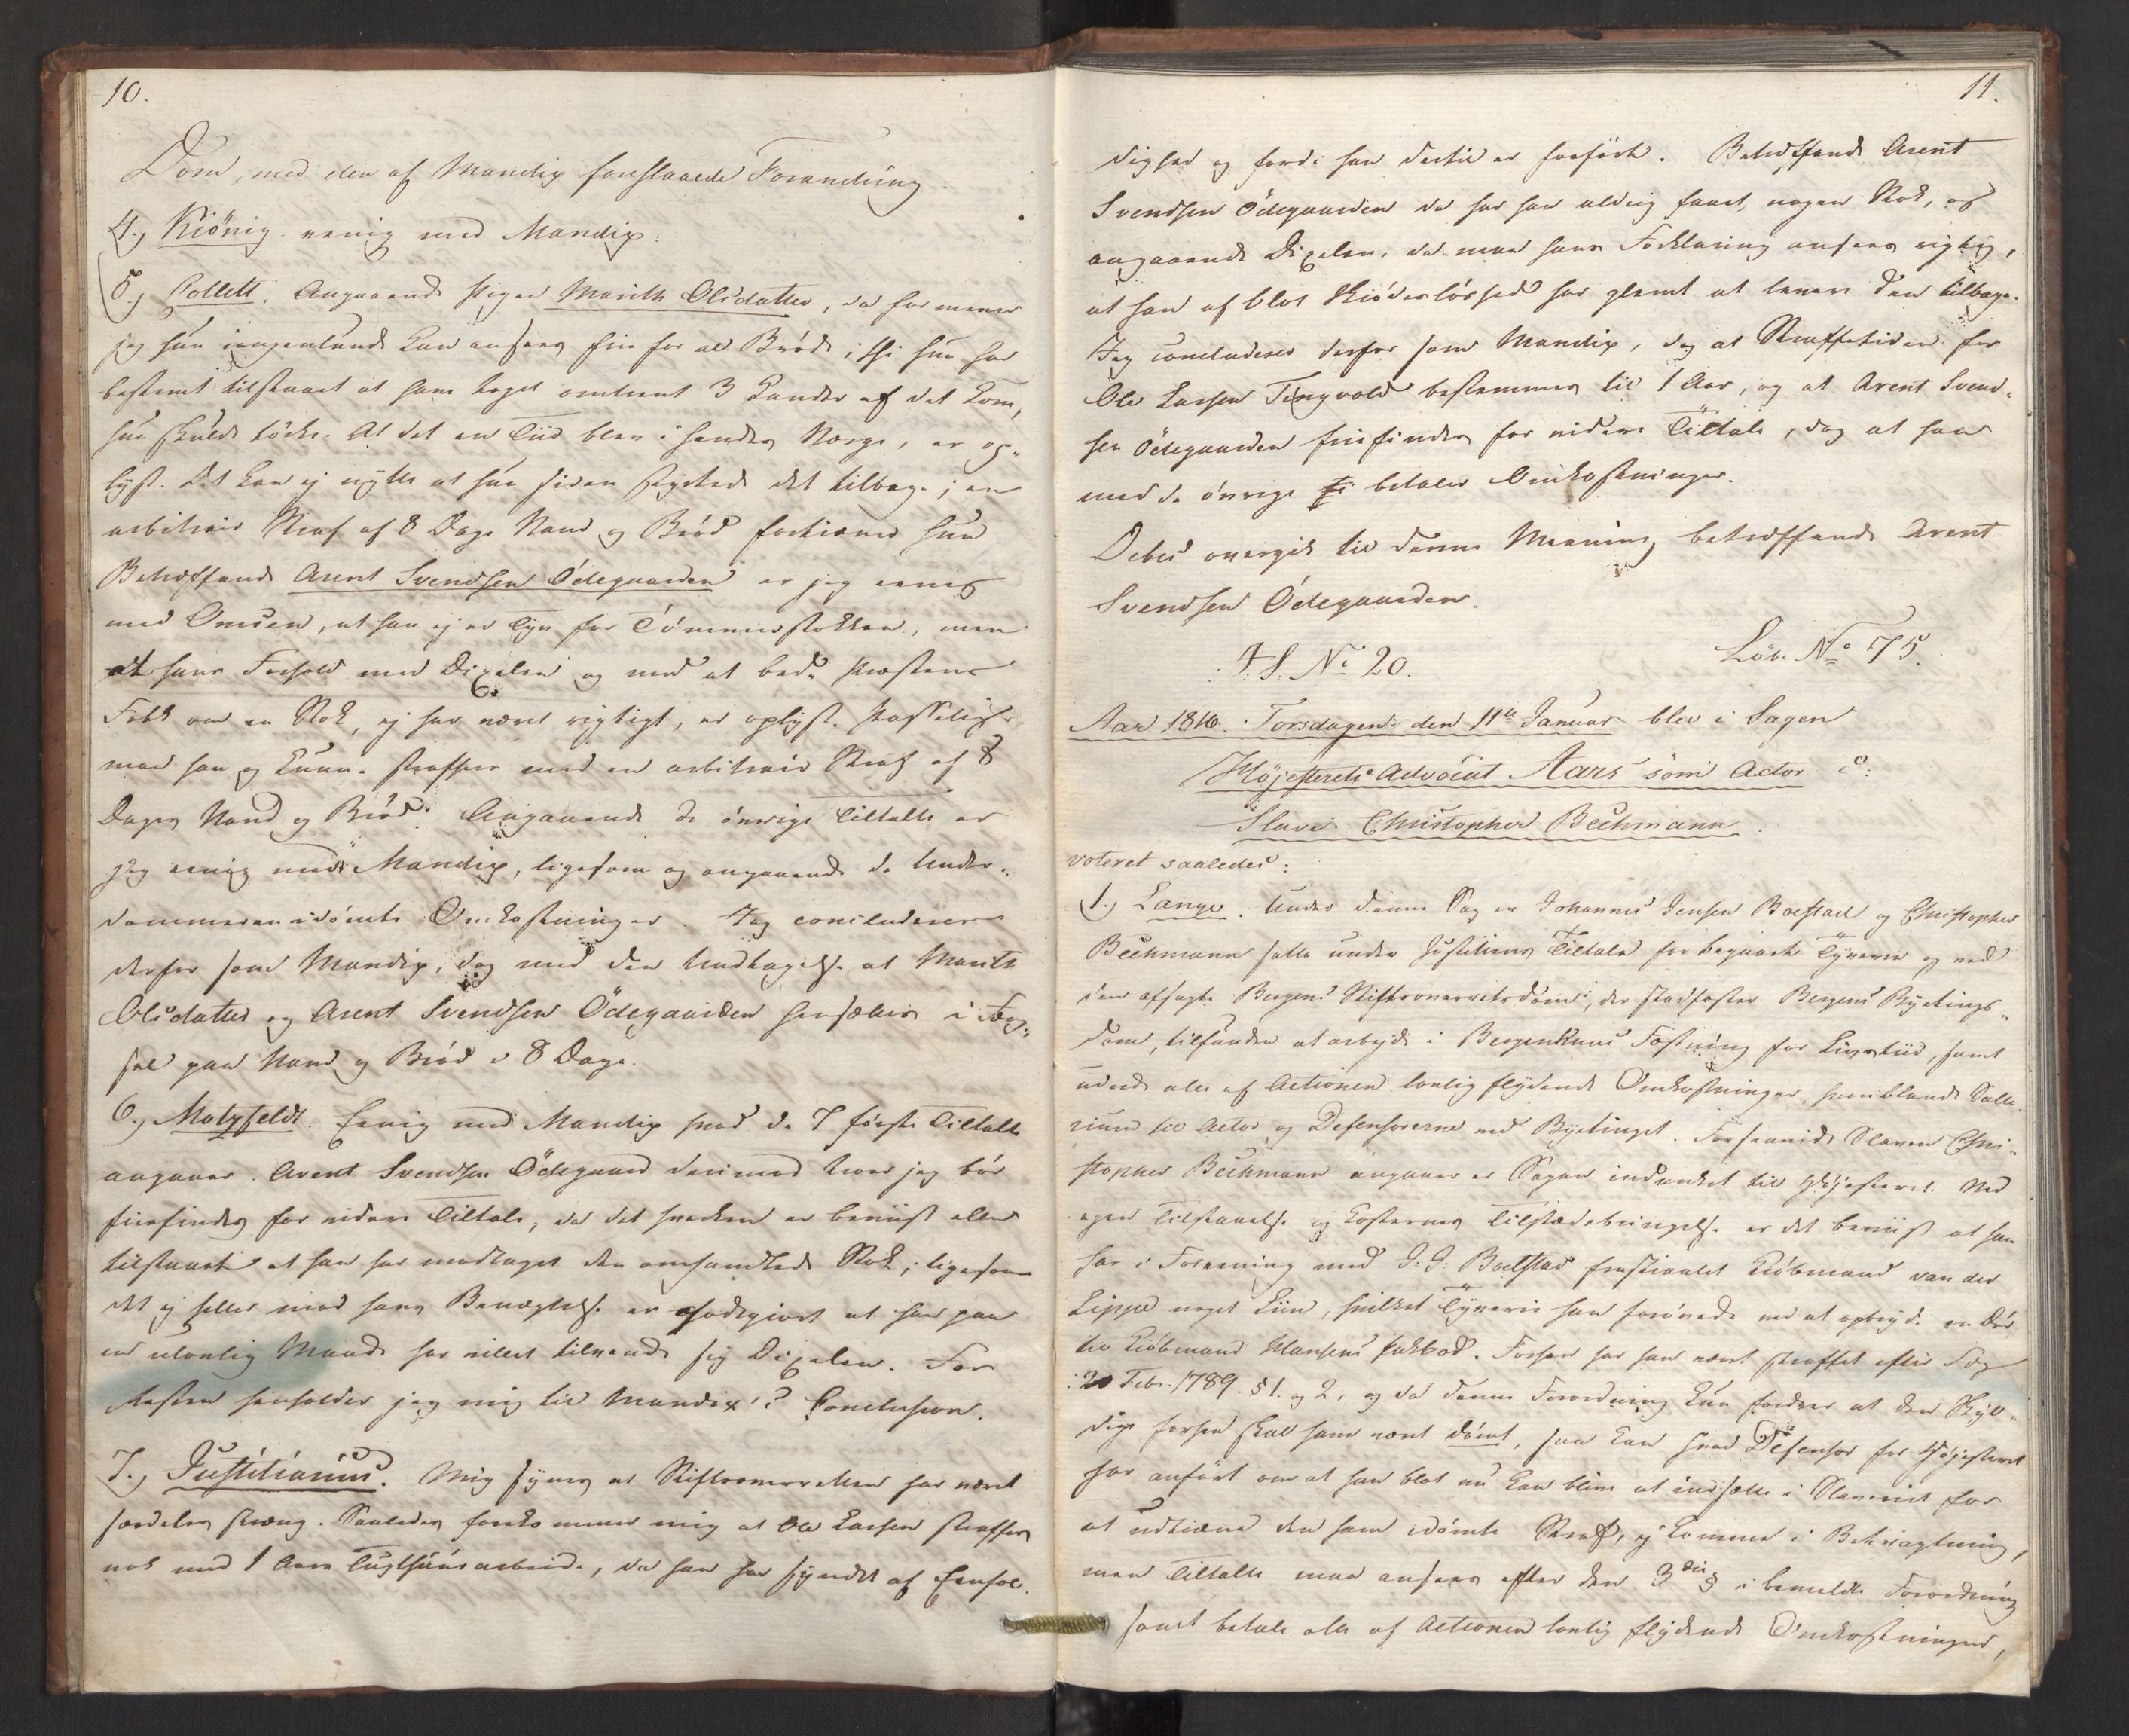 10.
Dom, med den af Mandix foreslaaede Forandring.
4., Kiönig. eenig med Mandix.
5., Collett. Angaaende Pigen Marith Olsdatter, da formener
jeg hun ingenlunde kan ansees frie for al Bröde; thi hun har
bestemt tilstaaet at have taget omtrent 3 Kander af det Korn,
hun skulde tørke. At det en Tiid blev i hendes Værge, er op-
lyst. Det kan ej nytte at hun siden skyttede det tilbage; en
arbitrair Straf af 8 Dage Vand og Bröd fortiener hun
Betræffende Arent Svendsen Ödegaarden er jeg eenig
med Omsen, at han ej er Tyv for Tömmerstokken, men
at hans Forhold med Dixelen og med at bede Præstens
Folk om en Stok, ej har været rigtigt, er oplyst. Passeligt
maae han og kunne straffes med en arbitrair Straf af 8
Dages Vand og Bröd. Angaaende de övrige Tiltalte er
jeg eenig med Mandix, ligesom og angaaende de Under-
dommeren idömte Omkostninger. Jeg concluderer
derfor som Mandix, dog med den Undtagelse at Marith
Olsdatter og Arent Svendsen Ödegaarden hensættes i Fæng-
sel paa Vand og Bröd i 8 Dage.
6., Motzfeldt. Eenig med Mandix hvad de 7 förste Tiltalte
angaaer. Arent Svendsen Ödegaard derimod troer jeg bör
friefindes for videre Tiltale, da det hverken er beviist eller
tilstaaet at han har modtaget den omhandlede Stok; ligesom
det ej heller mod hans Benægtelse er godtgiort at han paa
en ulovlig Maade har villet tilvende sig Dixelen. For
Resten henholder jeg mig til Mandix's Conclusion.
7., Justitiarius. Mig synes at Stiftsoverretten har været
særdeles streng. Saaledes forekommer mig at Ole Larsen straffes
nok med 1 Aars Tugthuusarbeide, da han har syndet af Eenfol-
11.
dighed og fordi han dertil er forfört. Betræffende Arent
Svendsen Ödegaarden da har han aldrig faaet nogen Stok, og
angaaende Dixelen, da maa hans Forklaring ansees rigtig,
at han af blot Skiödeslöshed har glemt at levere den tilbage.
Jeg concluderer derfor som Mandix, dog at Straffetiden for
Ole Larsen Tengvold bestemmes til 1 Aar, og at Arent Svend-
sen Ödegaarden friefindes for videre Tiltale, dog at han
med de övrige betaler Omkostninger.
Debes overgik til denne Meening betræffende Arent
Svendsen Ödegaarden.
F. S. No 20. Löbe No 75.
Aar 1816. Torsdagen den 11te Januar blev i Sagen
Höjesterets Advocat Aars som Actor c:
Slave Christopher Beckmann.
voteret saaledes:
1., Lange. Under denne Sag er Johannes Jensen Boestad og Christopher
Beckmann satte under Justitiens Tiltale for begaaet Tyverie og ved
den afsagte Bergens Stiftsoverretsdom, der stadfæster Bergens Byetings-
dom, tilfunden at arbeyde i Bergenhuus Fæstning for Livstiid, samt
udrede alle af Actionen lovlig flydende Omkostninger, hvoriblandt Salle-
rium til Actor og Defensorerne ved Byetinget. Forsaavidt Slaven Chri-
stopher Beckmann angaaer er Sagen indanket til Höjesteret. Ved
egen Tilstaaelse og Kosternes Tilstædebringelse er det beviist at han
har i Forening med J. J. Boestad frastiaalet Kiöbmand van der
Lippe noget Liin, hvilket Tyverie han forövede ved at opbryde en Dör
til Kiöbmand Hansens Pakbod. Forhen har han været straffet efter Fog
20 Febr. 1789. § 1. og 2, og da denne Forordning kun fordrer at den Skyl-
dige forhen skal have været dömt, saa kan hvad Defensor for Höjesteret
har anfört om at han blot nu kan blive at indsætte i Slaveriet for
at udtiene den ham idömte Straf, ej komme i Betragtning,
men Tiltalte maa ansees efter den 3die § i bemeldte Forordning
samt betale alle af Actionen lovlig flydende Omkostninger,